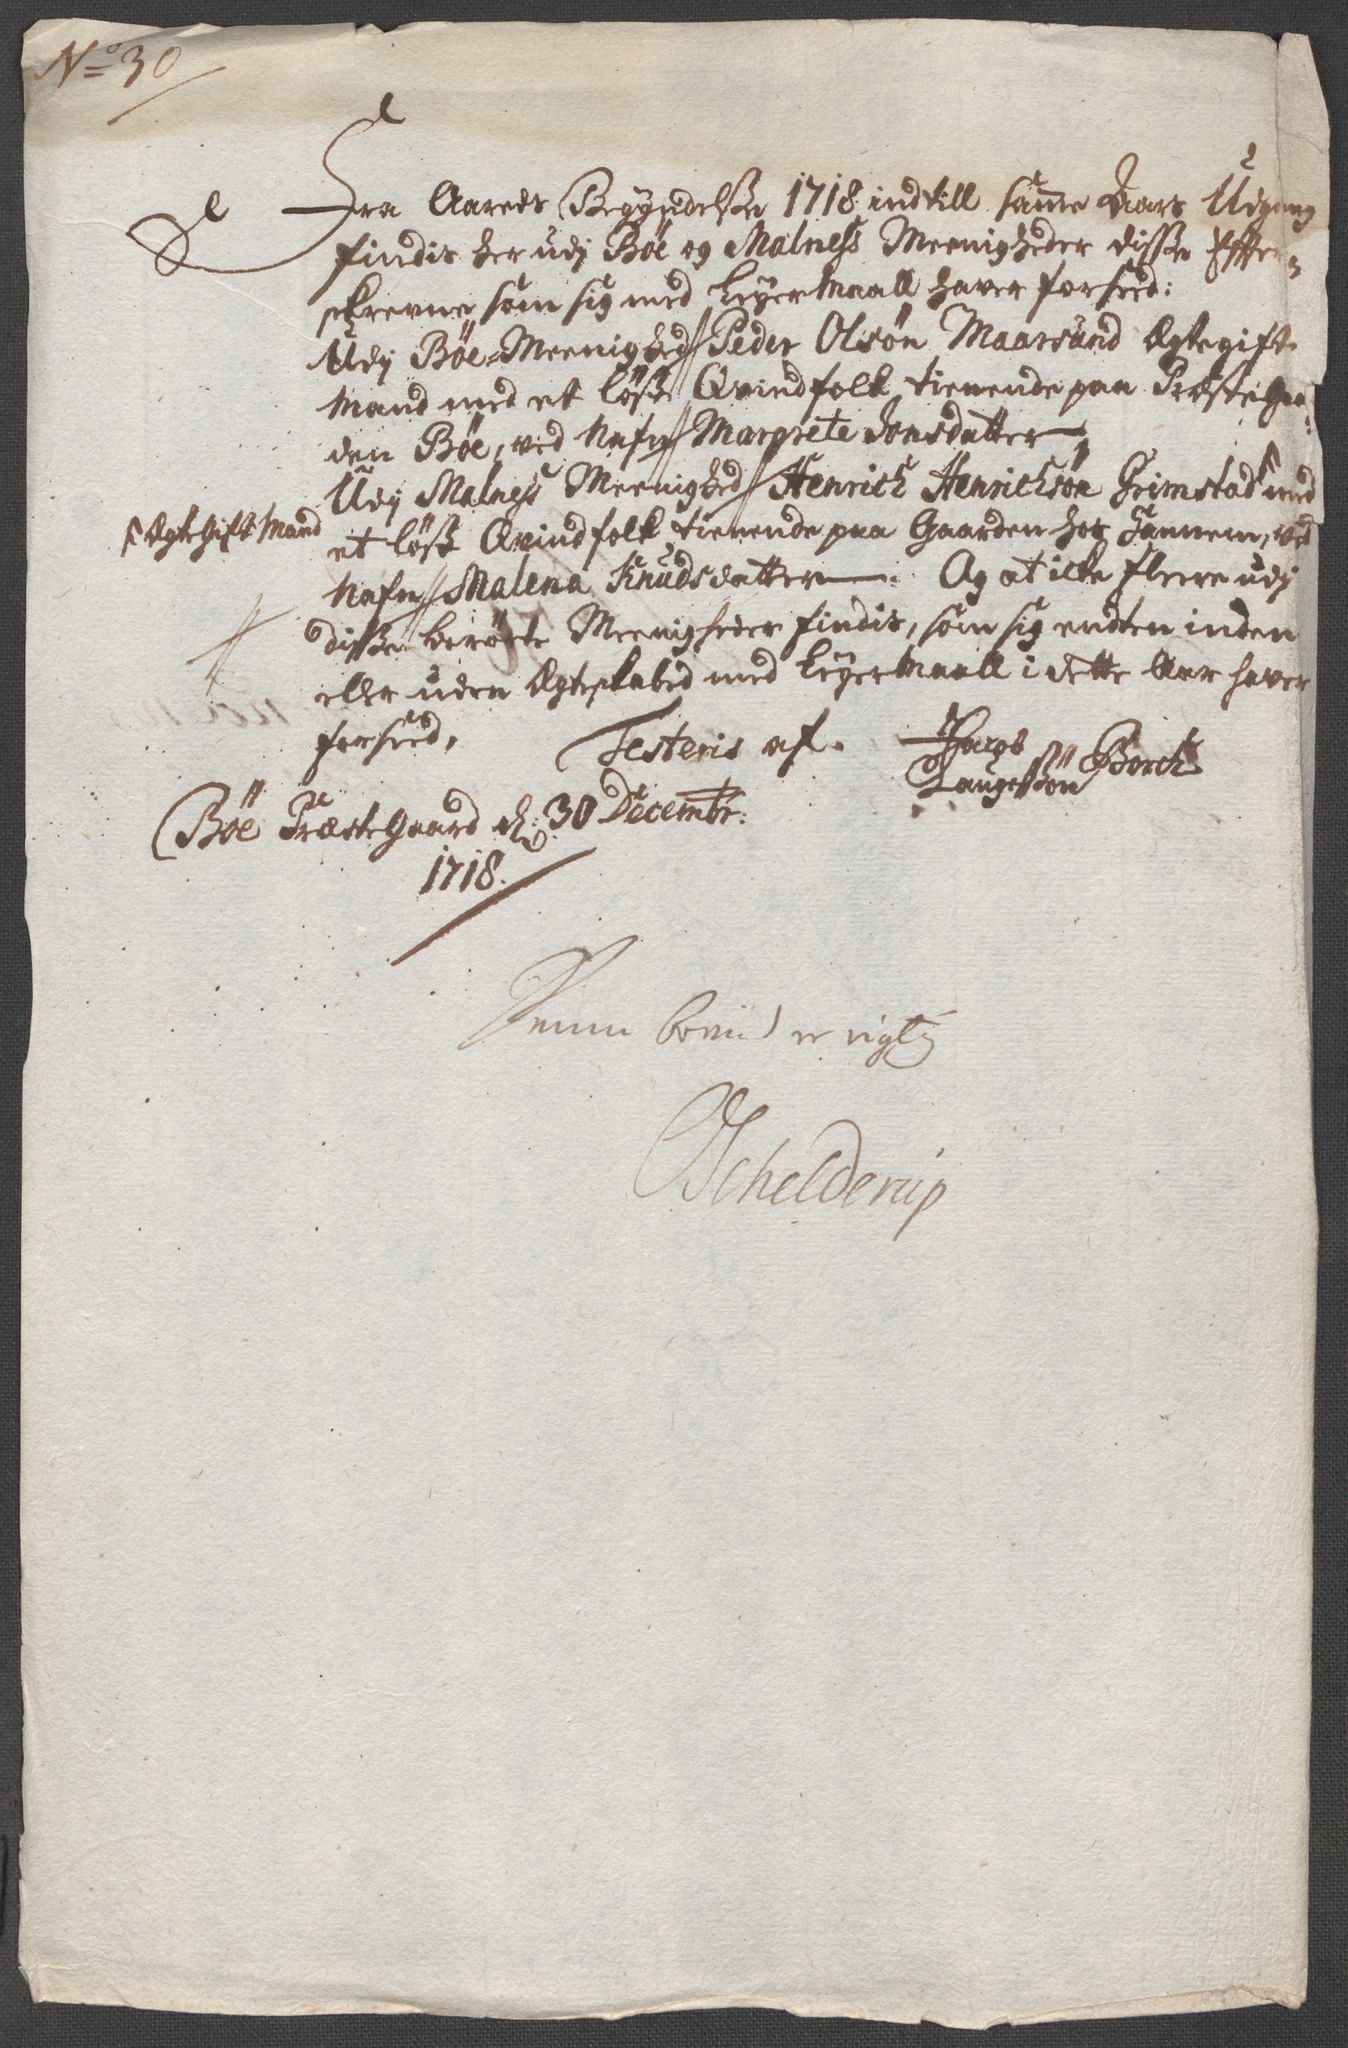 No 30
Fra Aarets Begyndelse 1718 indtill samme Aars Udgang
findis her udj Böe og Malness Meenigheder disse Effter-
skrevne, som sig med Leyermaall haver forseed:
Udj Böe-Meenighed// Peder Olsön Maarsund Ægtegift
Mand med et löst Qvindfolk tienende paa Præstegaar-
den Böe, ved Nafn// Margrete Jonsdatter,
Udj Malness Meenighed// Henrich Henrichsön Grimstad med
Ægtegift Mand
et löst Qvindfolk tienende paa Gaarden hos ved
Nafn// Malena Knudsdatter. Og at icke fleere udj
disse berörte Meenigheder findis, som sig endten inden
eller uden Ægteskabed med Leyermaall i dette Aar haver
forseed,
Testeris af. Jacob
Laugessön Borch
Böe Præstegaard d: 30 Decembr:
1718.
Denne er rigtig
Schelderup